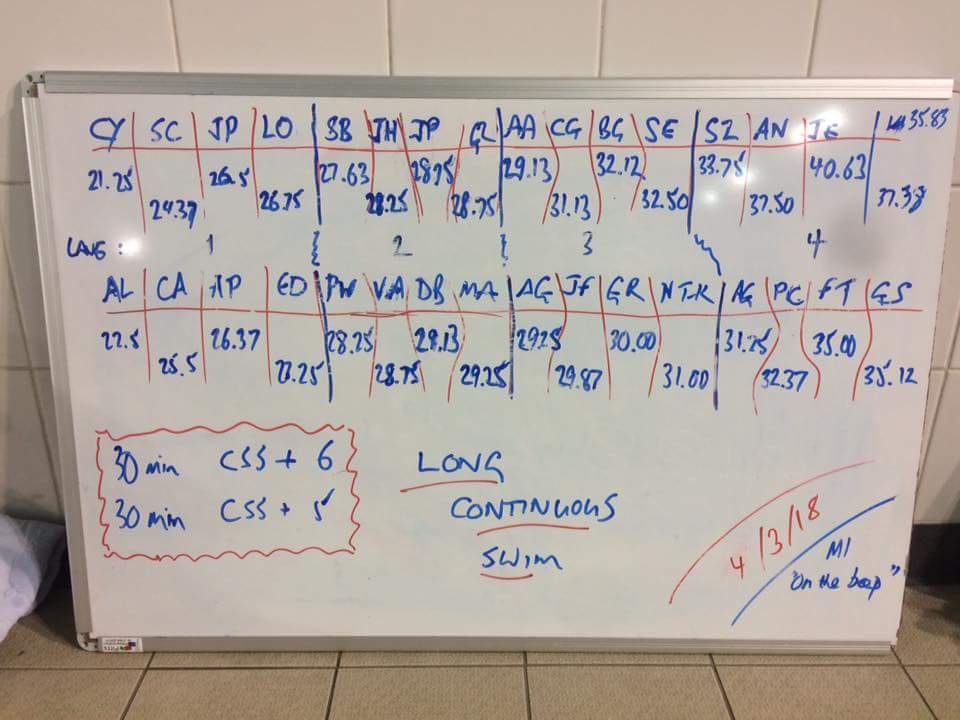 CY SC JP LO SB JH JP GL AA CG BG SE SZ AN JE 35.83
21.25 26.5 27.63 28.75 29.13 32.12 33.75 40.63
24.37 26.75 28.25 28.75 31.13 32.50 37.50 37.38
LANE : 1 2 3 4
AL CA AP ED PW VA DB MA AG JF GR NTR AG PC FT GS
22.5 26.37 28.25 29.13 29.25 30.00 31.25 35.00
25.5 27.25 28.75 29.25 29.87 31.00 32.37 35.12
30 min CSS + 6
30 min CSS + 5
LONG
CONTINUOUS
SWIM
4/3/18
M1
"On the beep"